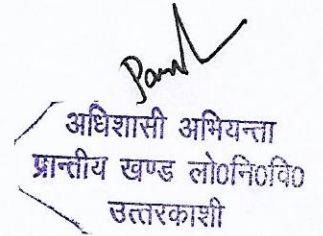 अधिशासी अभियन्ता
प्रान्तीय खण्ड लो०नि०वि०
उत्तरकाशी